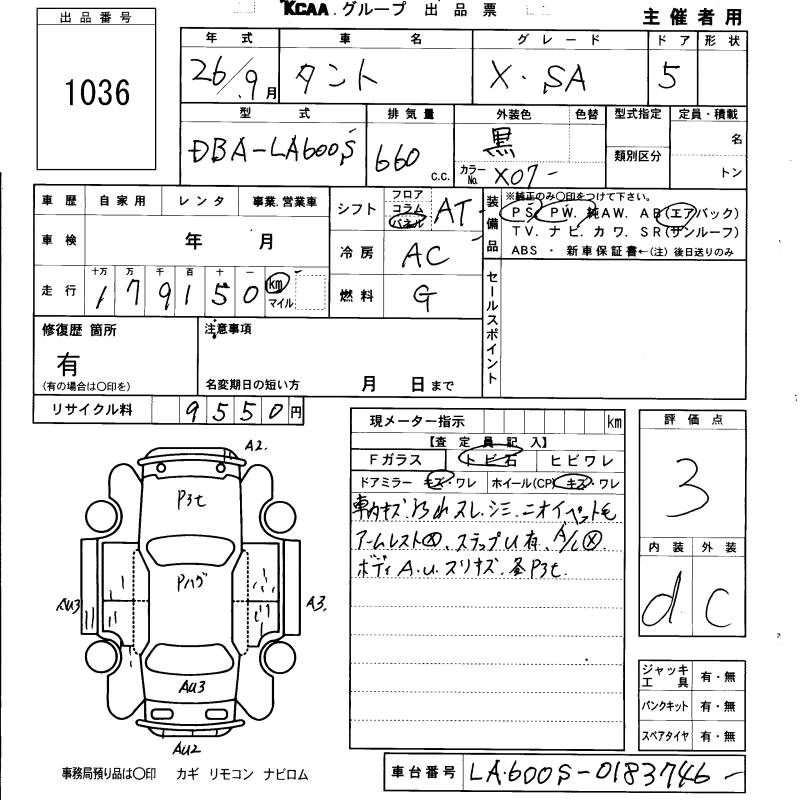 KCAA.グループ 出品票
主催者用
出品番号
1036
年式 車名 グレード ドア 形状
26/9月 タント X・SA 5
型式 排気量 外装色 色替 型式指定 定員・積載
DBA-LA600S 660 c.c. 黒 類別区分 名
カラーNo. X07- トン
車歴 自家用 レンタ 事業.営業車
車検 年 月
走行 十万 万 千 百 十 一
179150 km マイル
シフト フロア コラム パネル AT
冷房 AC
燃料 G
装備品 ※純正のみ〇印をつけて下さい。
PS. PW. 純AW. AB(エアバック)
TV. ナビ. カワ. SR(サンルーフ)
ABS ・ 新車保証書←(注)後日送りのみ
セールスポイント
修復歴 箇所
有
(有の場合は〇印を)
注意事項
名変期日の短い方 月 日まで
リサイクル料 9550円
現メーター指示 km
【査定員記入】
Fガラス トビ石 ヒビワレ
ドアミラー キズ・ワレ ホイール(CP) キズ・ワレ
車内キズ. スレ.シミ.ニオイペット毛
アームレスト. ステップU有. A/C
ボディA.U.スリキズ. P3t.
評価点
3
内装 外装
d C
ジャッキ工具 有・無
パンクキット 有・無
スペアタイヤ 有・無
A2.
P3t
Pハゲ
AU3
A3.
AU3
AU2
事務局預り品は〇印 カギ リモコン ナビロム
車台番号 LA600S-0183746-